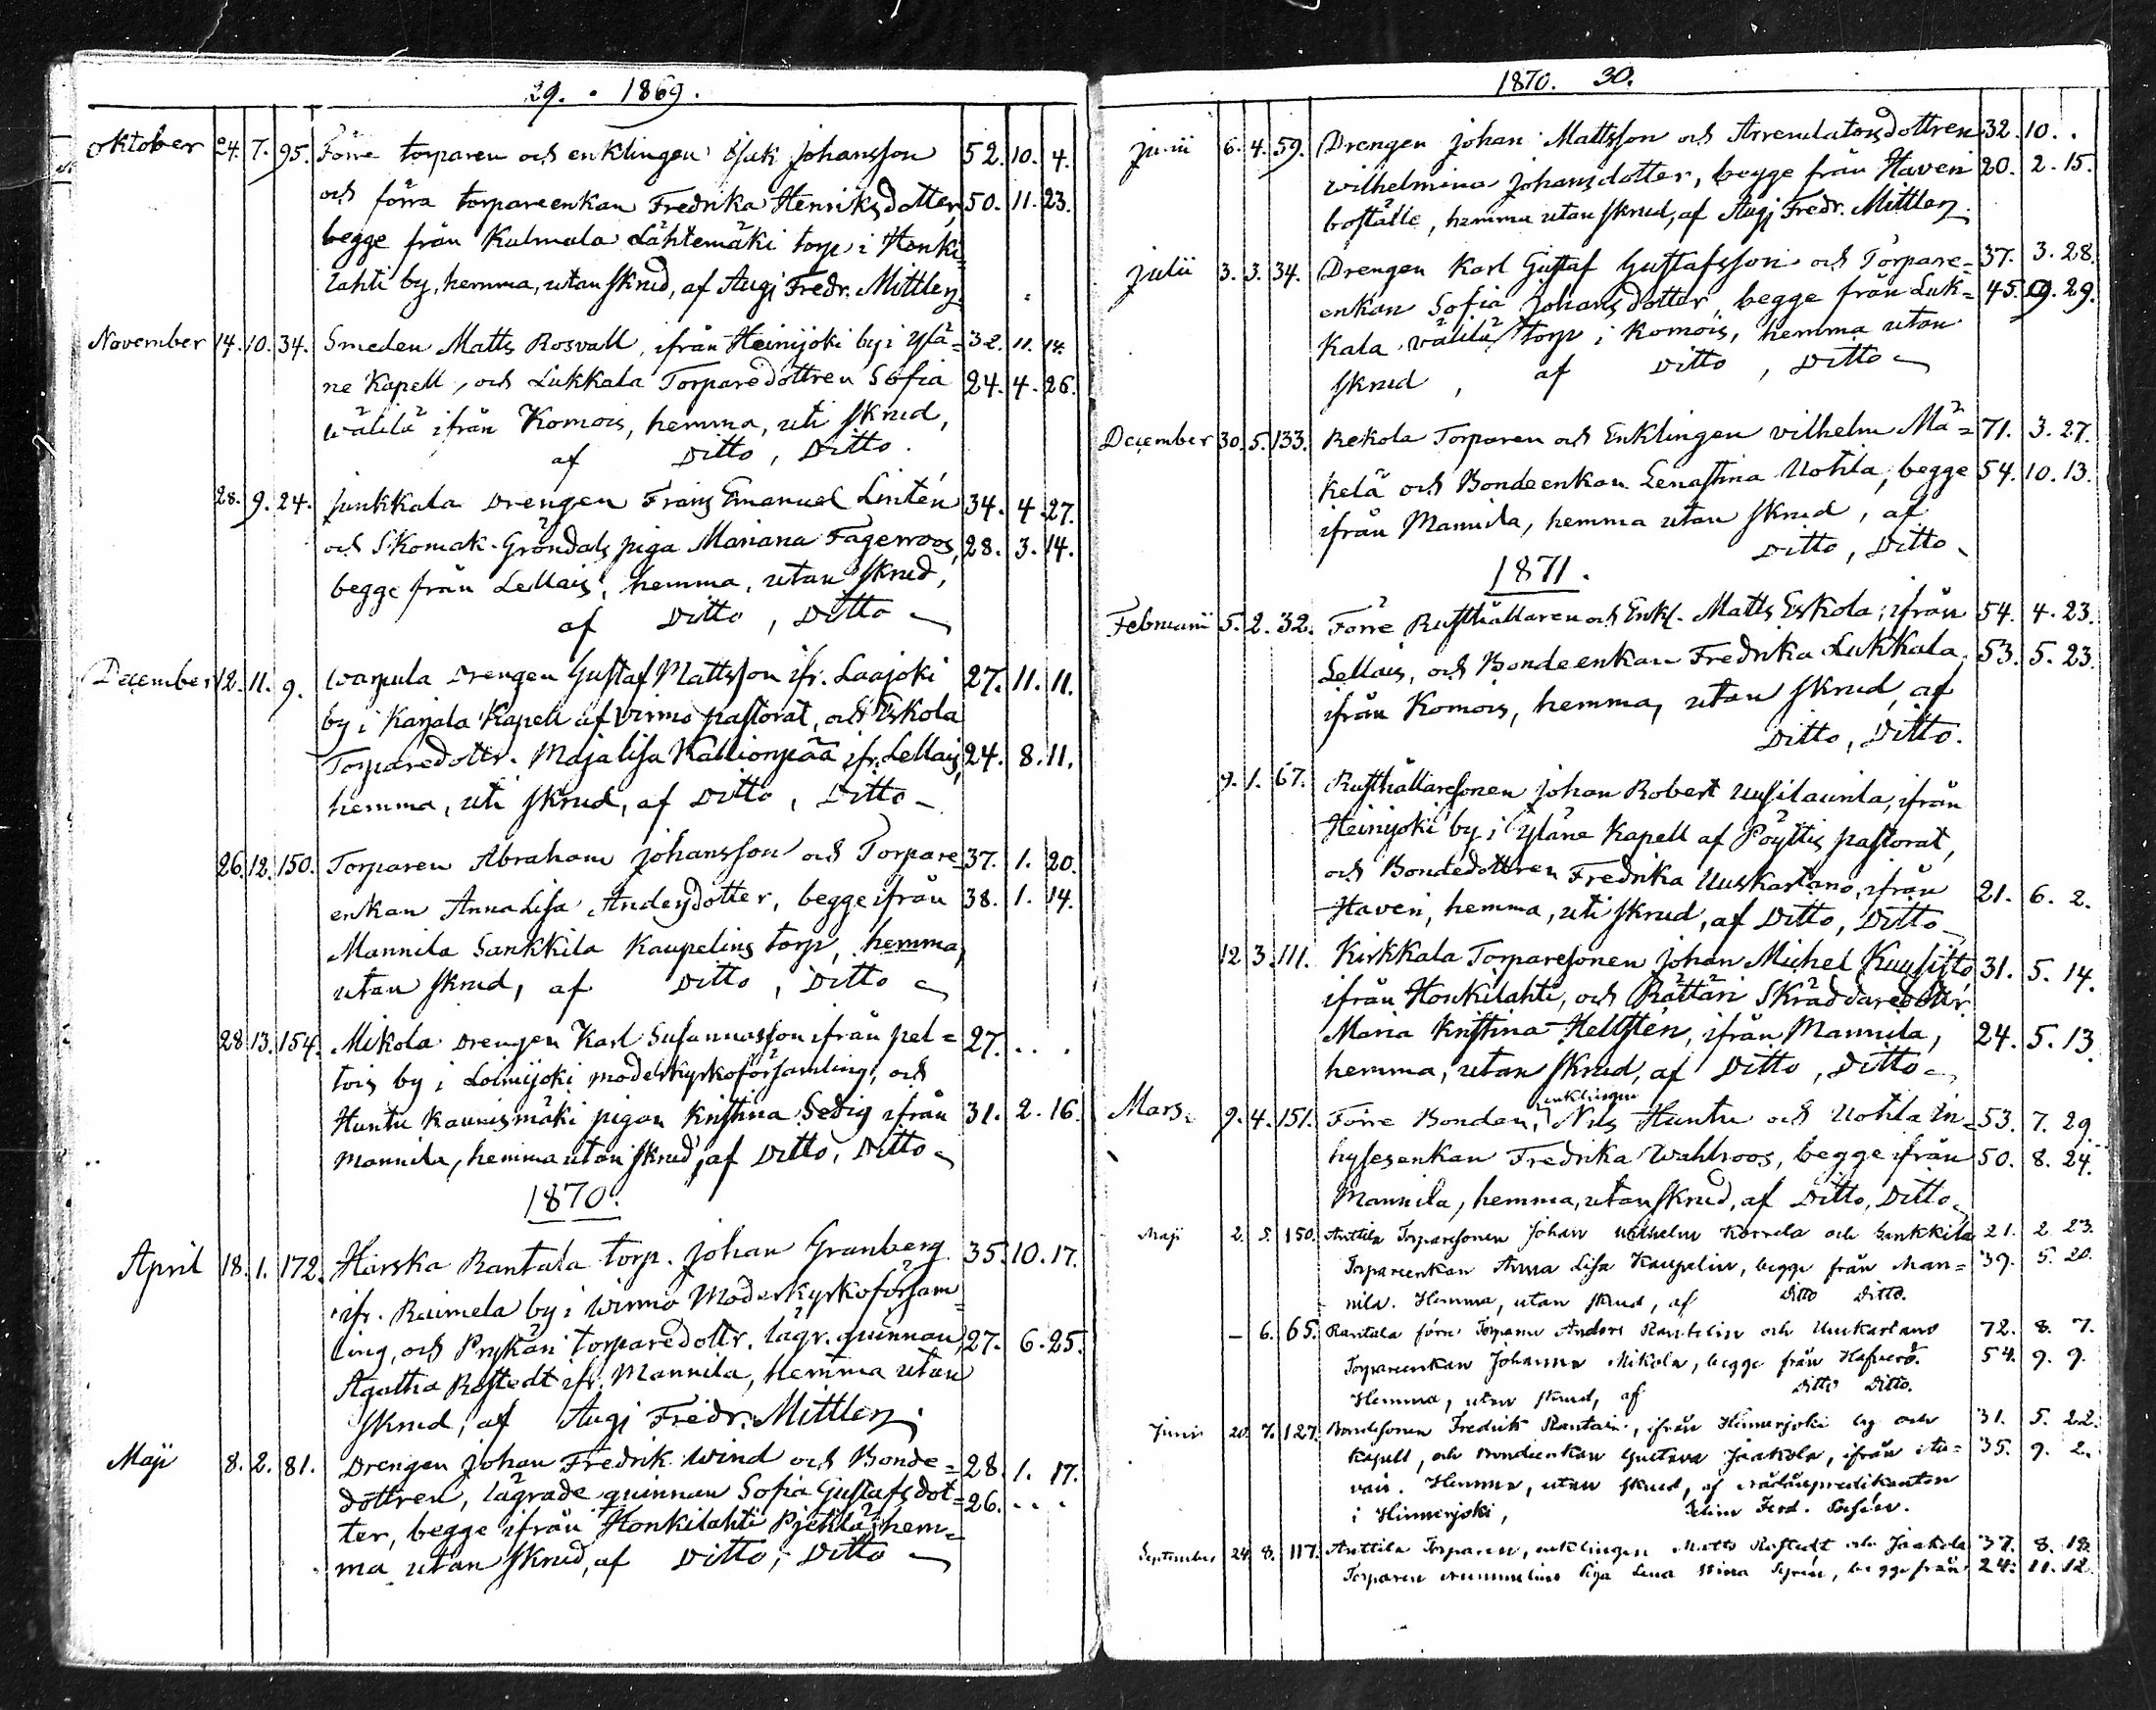 29. 1869.
Oktober 24. 7. 95. Förre torparen och enklingen Isak Johansson 52. 10. 4.
och förra torpareenkan Fredrika Henriksdotter 50. 11. 23.
begge från Kulmala Lähtemäki torp i Honki=
lahti by, hemma, utan skrud, af Augj Fredr. Mittler
November 14. 10. 34. Smeden Matts Rosvall, ifrån Heinijoki by i Ylä= 32. 11. 14.
ne Kapell, och Lukkala Torparedottren Sofia 24. 4. 26.
Wälilä ifrån Komois, hemma, uti skrud,
af Ditto, Ditto.
28. 9. 24. Junkkala Drengen Frans Emanuel Lintén 34. 4. 27.
och Skomak. Gröndals piga Mariana Fagerroos, 28. 3. 14.
begge från Lellais, hemma, utan skrud,
af Ditto, Ditto
December 12. 11. 9. Warpula Drengen Gustaf Mattsson ifr. Laajoki 27. 11. 11.
by i Karjala Kapell af Virmo pastorat, och Eskola
Torparedottr. Maja Lisa Kallionpää ifr. Lellais, 24. 8. 11.
hemma, uti skrud, af Ditto, Ditto
26. 12. 150. Torparen Abraham Johansson och Torpare= 37. 1. 20.
enkan Anna Lisa Andersdotter, begge ifrån 38. 1. 14.
Mannila Sankkila Kaupelins torp, hemma,
utan skrud, af Ditto, Ditto
28. 13. 154. Mikola Drengen Karl Susannasson ifrån Pel= 27. . .
tois by i Loimijoki moderkyrkoförsamling, och
Huntu Kaunismäki pigan Kristina Sedig ifrån 31. 2. 16.
Mannila, hemma utan skrud, af Ditto, Ditto
1870.
April 18. 1. 172. Härska Rantala torp. Johan Granberg 35. 10. 17.
ifr. Raimela by i Wirmo Moderkyrkoförsam=
ling, och Prykäri torparedottr. lägr. quinnan 27. 6. 25.
Agatha Rostedt ifr. Mannila, hemma utan
skrud, af Augj Fredr. Mittler.
Maji 8. 2. 81. Drengen Johan Fredrik Wind och Bonde= 28. 1. 17.
dottren, lägrade quinnan Sofia Gustafsdot= 26. . .
ter, begge ifrån Honkilahti Pjetilä, hem=
ma utan skrud, af Ditto, Ditto
1870. 30.
Junii 6. 4. 59. Drengen Johan Mattsson och Arrendatorsdottren 32. 10. .
Wilhelmina Johansdotter, begge från Haveri 20. 2. 15.
boställe, hemma utan skrud, af Augj Fredr. Mittler.
Julii 3. 3. 34. Drengen Karl Gustaf Gustafsson och Torpare= 37. 3. 28.
enkan Sofia Johansdotter, begge från Luk= 45. 9. 29.
kala Wälilä torp i Komois, hemma utan
skrud, af Ditto, Ditto
December 30. 5. 133. Rekola Torparen och Enklingen Vilhelm Mä= 71. 3. 27.
kelä och Bondeenkan Lenastina Uotila, begge 54. 10. 13.
ifrån Mannila, hemma utan skrud, af
Ditto, Ditto
1871.
Februarii 5. 2. 32. Förre Rusthållaren och Enkl. Matts Eskola, ifrån 54. 4. 23.
Lellais, och Bondeenkan Fredrika Lukkala, 53. 5. 23.
ifrån Komois, hemma, utan skrud, af
Ditto, Ditto.
9. 1. 67. Rusthållaresonen Johan Robert Uusilaurila, ifrån
Heinijoki by i Yläne Kapell af Pöyttis pastorat,
och Bondedottren Fredrika Uuskartano, ifrån 21. 6. 2.
Haveri, hemma, uti skrud, af Ditto, Ditto
12. 3. 111. Kirkkala Torparesonen Johan Michel Kuusisto 31. 5. 14.
ifrån Honkilahti, och Rättäri Skräddaredottr.
Maria Kristina Hellstén, ifrån Mannila, 24. 5. 13.
hemma, utan skrud, af Ditto, Ditto
enklingen
Mars 9. 4. 151. Förre Bonden, Nils Huntu och Uotila in= 53. 7. 29.
hysesenkan Fredrika Wahlroos, begge ifrån 50. 8. 24.
Mannila, hemma, utan skrud, af Ditto, Ditto
Maji 2. 5. 150. Anttila Torparesonen Johan Wilhelm Korrela och Sankkila 21. 2. 23.
Torpareenkan Anna Lisa Kaupelin, begge från Man= 39. 5. 20.
nila. Hemma, utan skrud, af Ditto Ditto.
— 6. 65. Rantala förre Torparen Anders Rantelin och Uuskartano 72. 8. 7.
Torpareenkan Johanna Mikola, begge från Hafverö. 54. 9. 9.
Hemma, utan skrud, af Ditto Ditto.
Junii 20. 7. 127. Bondesonen Fredrik Rantala, ifrån Hinnerjoki by och 31. 5. 22.
Kapell, och Bondeenkan Gustava Jaakola, ifrån 35. 9. 2.
Hemma, utan skrud, af
i Hinnerjoki, Ferd.
September 24. 8. 117. Anttila Torparen, enklingen Matts Rostedt och Jaakola 37. 8. 18.
Torparen Nummelins Piga Lena Stina Syrén, begge från 24. 11. 12.